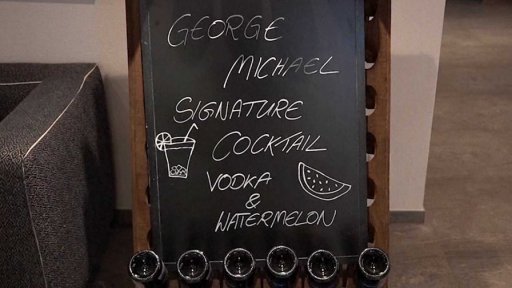 GEORGE
MICHAEL
SIGNATURE
COCKTAIL
VODKA
&
WATERMELON